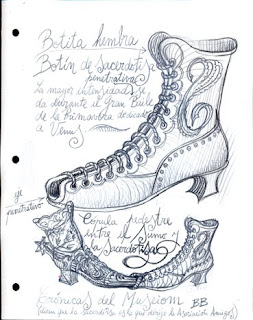 Botita hembra
Botín de Sacerdotisa
penetrativa
La mayor intensidad se
da durante el Gran Baile
de la primavera dedicado
a Venus
eje
penetrativo
Cópula pedestre
entre el Sumo y
la Sacerdotisa
Crónicas del Museiom BB
(dicen que la sacerdotisa es la que dirige la Asociación Amigos)